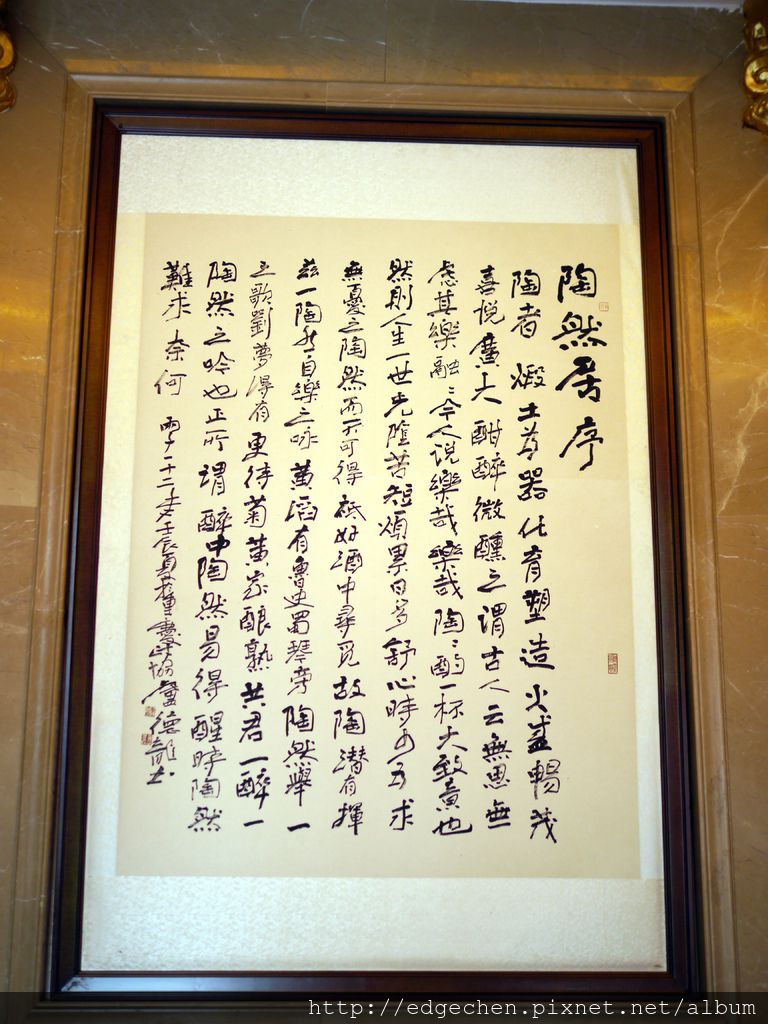 陶然居序
陶者煅土為器化育塑造火盛暢茂
喜悦廣大酣醉微醺之謂古人云無思無
慮其樂融〻今人说樂哉樂哉陶〻酌一杯大致意也
然則人生一世光陰苦短煩累日多舒心時少吾求
無憂之陶然而不可得祗好酒中尋覓故陶潜有揮
兹一陶然自樂之咏黄滔有魯史蜀琴旁陶然舉一
之歌劉夢得有更待菊黄家釀熟共君一醉一
陶然之吟也正所謂醉中陶然易得醒時陶然
難求奈何
http://edgechen.pixnet.net/album